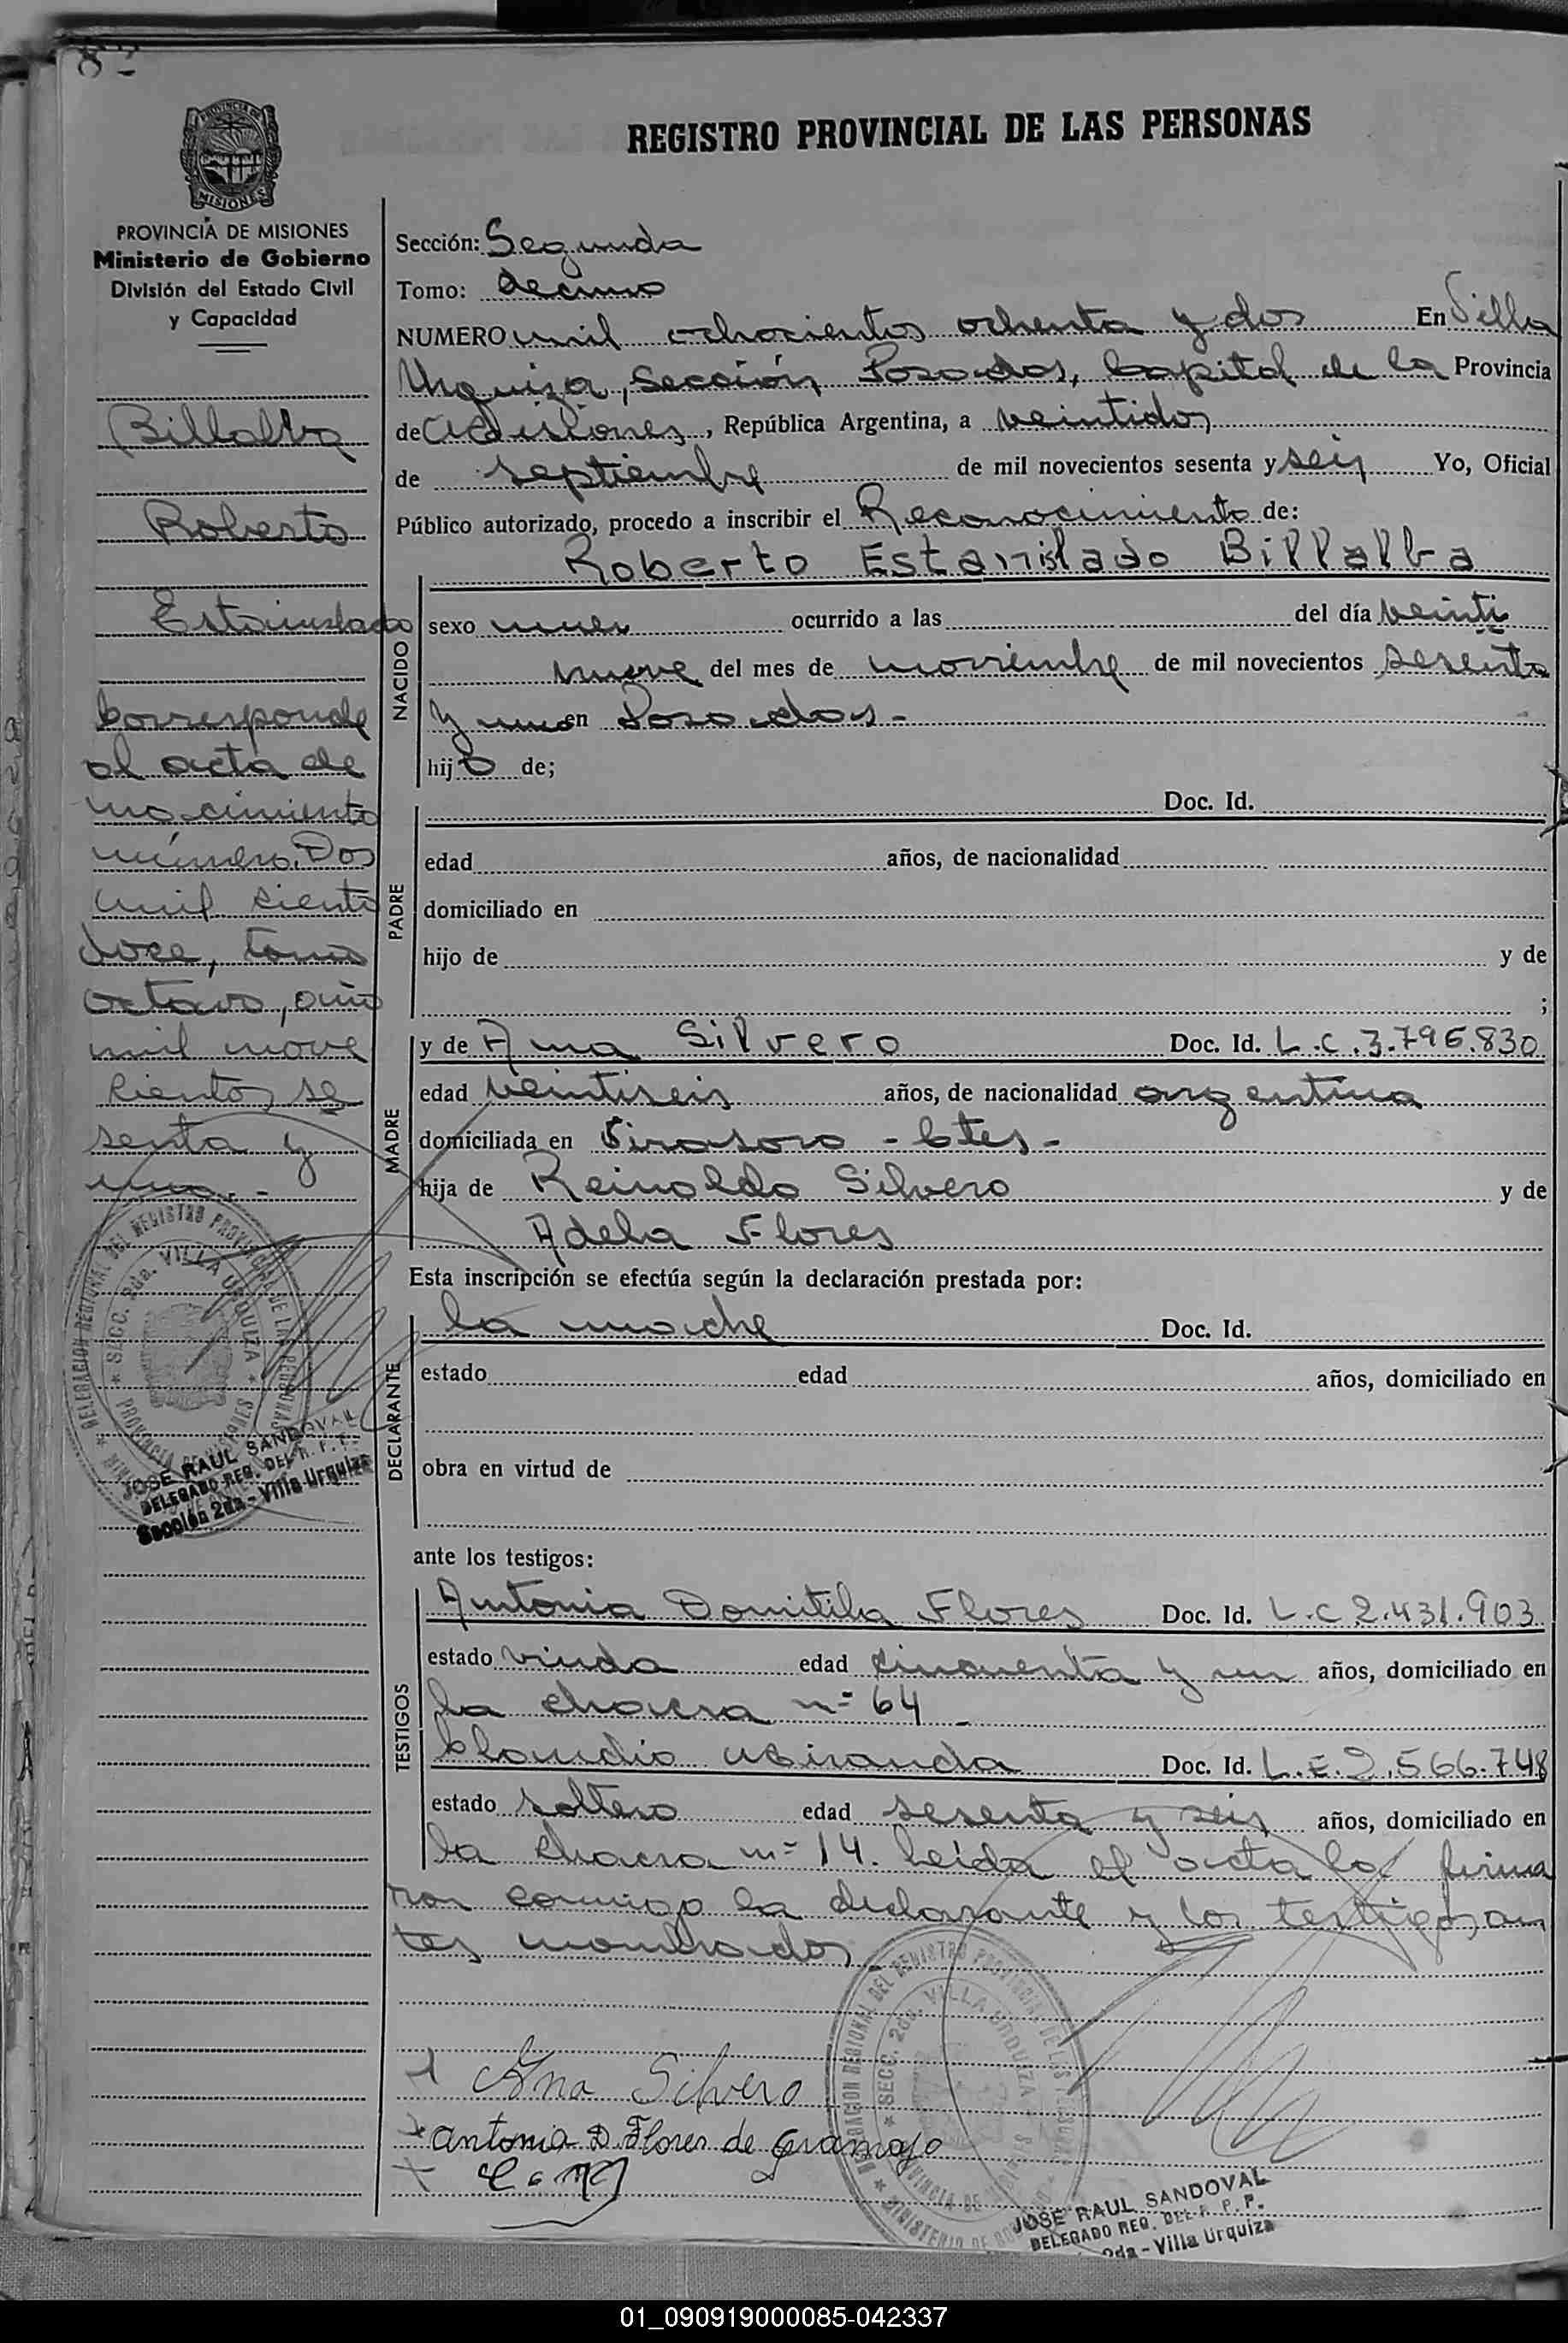 REGISTRO PROVINCIAL DE LAS PERSONAS
PROVINCIA DE MISIONES
Ministerio de Gobierno
División del Estado Civil
y Capacidad
Billalba
Roberto
Estanislado
Corresponde
al acta de
nacimiento
número Dos
mil ciento
doce, tomo
octavo, año
mil nove
cientos se
senta y
uno.-
DELEGACION REGIONAL DEL REGISTRO PROVINCIAL DE LAS PERSONAS
SECC. 2da. VILLA URQUIZA
PROVINCIA DE MISIONES
JOSE RAUL SANDOVAL
DELEGADO REG. DEL R. P. P.
Sección 2da - Villa Urquiza
Sección: Segunda
Tomo: decimo
NUMERO mil ochocientos ochenta y dos En Villa
Urquiza, Sección Posadas, Capital de la Provincia
de Misiones, República Argentina, a veintidos
de septiembre de mil novecientos sesenta y seis Yo, Oficial
Público autorizado, procedo a inscribir el Reconocimiento de:
Roberto Estanislado Billalba
NACIDO
sexo ocurrido a las del día veinti
nueve del mes de noviembre de mil novecientos sesenta
y uno en Posadas-
hijo de;
PADRE
Doc. Id.
edad años, de nacionalidad
domiciliado en
hijo de y de
;
MADRE
y de Ana Silvero Doc. Id. L.C.3.796.830
edad veintiseis años, de nacionalidad argentina
domiciliada en Virasoro - Ctes-
hija de Reinoldo Silvero y de
Adela Flores
Esta inscripción se efectúa según la declaración prestada por:
DECLARANTE
la madre Doc. Id.
estado edad años, domiciliado en
obra en virtud de
ante los testigos:
TESTIGOS
Antonia Domitila Flores Doc. Id. L.C 2.431.903
estado viuda edad cincuenta y un años, domiciliado en
la chacra nº 64 -
Claudio Miranda Doc. Id. L.E.2.566.748
estado soltero edad sesenta y seis años, domiciliado en
la chacra nº 14. Leída el acta la firma
ron conmigo la declarante y los testigos an
tes nombrados
Ana Silvero
Antonia D. Flores de Gramajo
DELEGACION REGIONAL DEL REGISTRO PROVINCIAL DE LAS PERSONAS
SECC. 2da. VILLA URQUIZA
JOSE RAUL SANDOVAL
DELEGADO REG. DEL R. P. P.
2da - Villa Urquiza
01_090919000085-042337